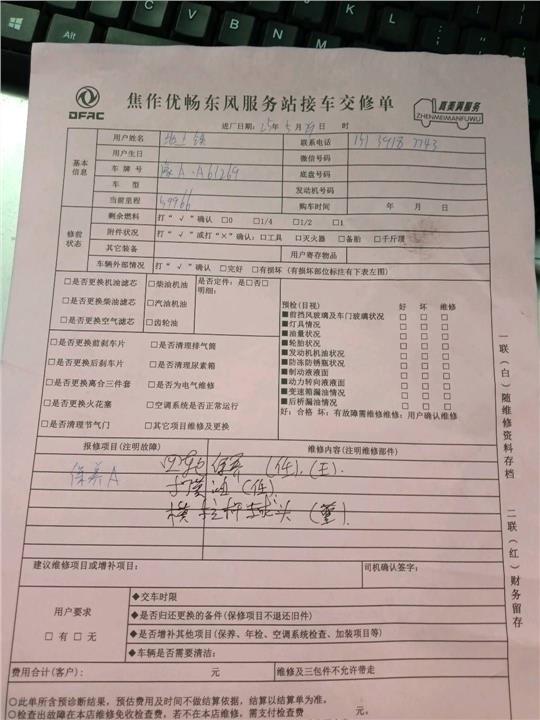 DFAC
焦作优畅东风服务站接车交修单
真美满服务
ZHENMEIMANFUWU
进厂日期: 25年 5月 日 时
基本信息
用户姓名 联系电话
用户生日 微信号码
车牌号 豫A·A61269 底盘号码
车型 发动机号码
当前里程 59966 购车时间 年 月 日
修前状态
剩余燃料 打“√”确认 □0 □1/4 □1/2 □1
附件状况 打“√”或打“×”确认:□工具 □灭火器 □备胎 □千斤顶
其它装备 用户寄存物品
车辆外部情况 打“√”确认 □完好 □有损坏(有损坏部位标注有下表左图)
□是否更换机油滤芯 □柴油机油 是否定件:是□否□
明细:
□是否更换柴油滤芯 □汽油机油
□是否更换空气滤芯 □齿轮油
□是否更换前刹车片 □是否清理排气筒
□是否更换后刹车片 □是否清理尿素箱
□是否更换离合三件套 □是否为电气维修
□是否更换火花塞 □空调系统是否正常运行
□是否清理节气门 □其它项目维修及更换
预检(目视) 好 坏 维修
■前挡风玻璃及车门玻璃状况 □ □ □
■灯具情况 □ □ □
■油量状况 □ □ □
■轮胎状况 □ □ □
■发动机机油状况 □ □ □
■防冻防锈瓶状况 □ □ □
■制动液液面 □ □ □
■动力转向液液面 □ □ □
■变速箱漏油情况 □ □ □
■后桥漏油情况 □ □ □
好:合格 坏:有故障需维修维修:用户确认维修
报修项目(注明故障) 维修内容(注明维修部件)
保养A
保养(任).(王).
(任)
横拉杆球头
建议维修项目或增补项目: 司机确认签字:
用户要求
□有 □无
◆交车时限
◆是否归还更换的备件(保修项目不退还旧件)
◆是否增补其他项目(保养、年检、空调系统检查、加装项目等)
◆车辆是否需要清洁:
费用合计(客户): 元 维修及三包件不允许带走
○此单所含预诊断结果,预估费用及时间不做结算依据,结算以结算单为准。
○检查出故障在本店维修免收检查费,若不在本店维修,需支付检查费 元。
一联(白)随维修资料存档
二联(红)财务留存